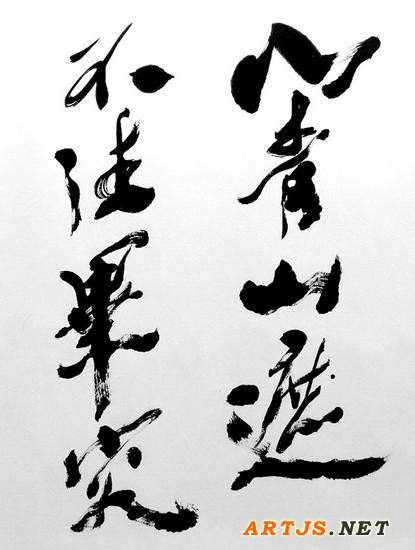 青山遮
不住畢
ARTJS.NET